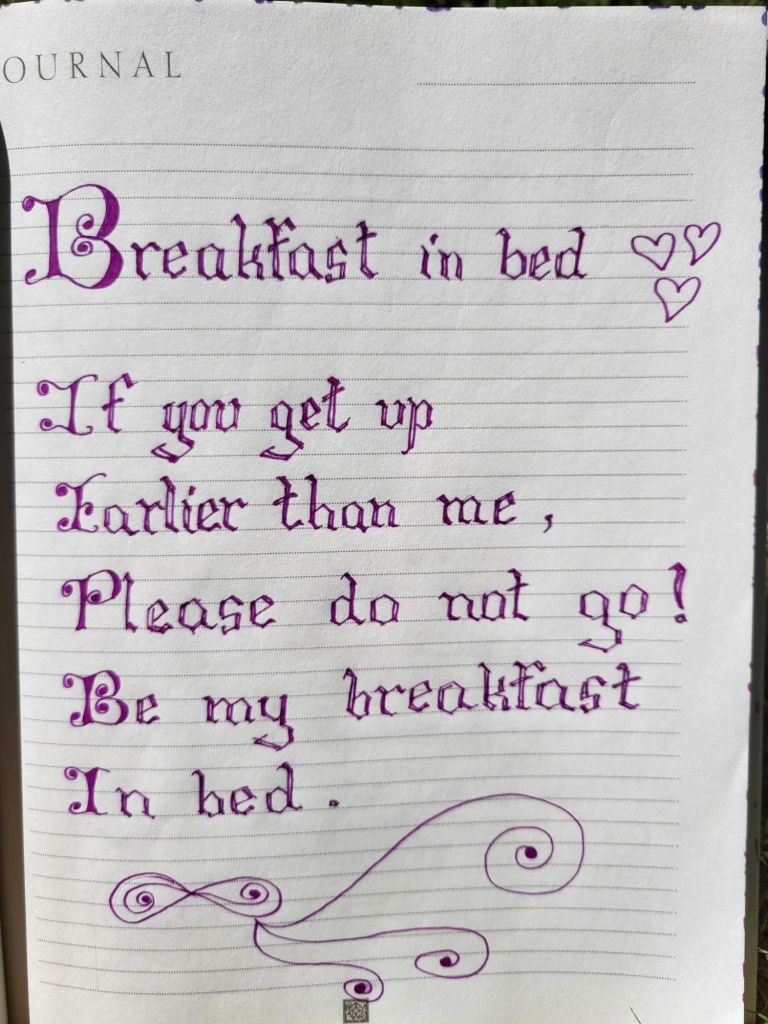 OURNAL
Breakfast in bed
If you get up
Earlier than me,
Please do not go!
Be my breakfast
In bed.